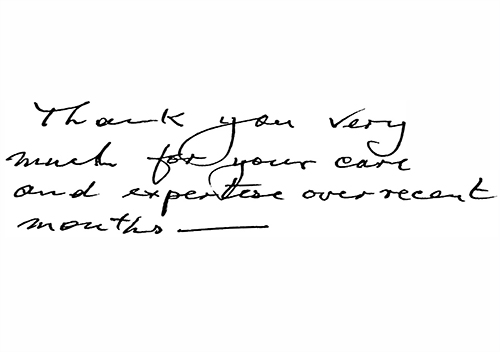 Thank you very
much for your care
and expertise over recent
months —